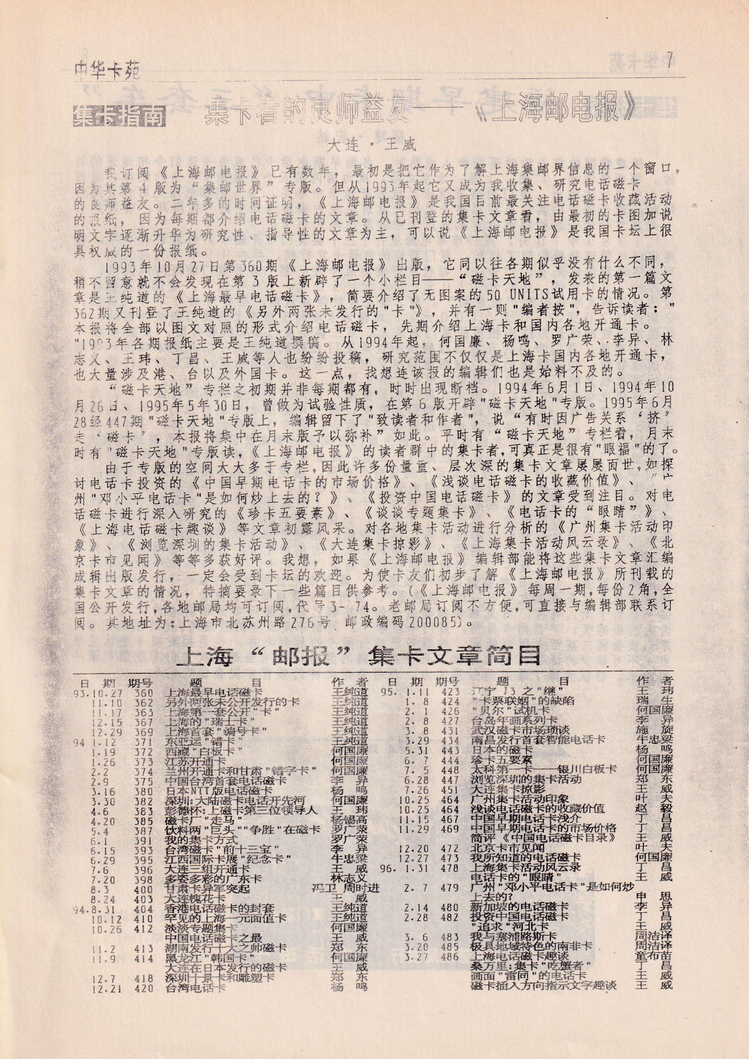 中华卡苑
7
集卡指南 集卡者的良师益友——《上海邮电报》
大连·王威
我订阅《上海邮电报》已有数年，最初是把它作为了解上海集邮界信息的一个窗口，
因为其第4版为“集邮世界”专版。但从1993年起它又成为我收集、研究电话磁卡
的良师益友。二年多的时间证明，《上海邮电报》是我国目前最关注电话磁卡收藏活动
的报纸，因为每期都介绍电话磁卡的文章。从已刊登的集卡文章看，由最初的卡图加说
明文字逐渐升华为研究性、指导性的文章为主，可以说《上海邮电报》是我国卡坛上很
具权威的一份报纸。
1993年10月27日第360期《上海邮电报》出版，它同以往各期似乎没有什么不同，
稍不留意就不会发现在第3版上新辟了一个小栏目——“磁卡天地”，发表的第一篇文
章是王纯道的《上海最早电话磁卡》，简要介绍了无图案的50 UNITS试用卡的情况。第
362期又刊登了王纯道的《另外两张未发行的"卡"》，并有一则"编者按"，告诉读者："
本报将全部以图文对照的形式介绍电话磁卡，先期介绍上海卡和国内各地开通卡。
"1993年各期报纸主要是王纯道撰稿。从1994年起，何国廉、杨鸣、罗广荣、李异、林
志义、王玮、丁昌、王威等人也纷纷投稿，研究范围不仅仅是上海卡国内各地开通卡，
也大量涉及港、台以及外国卡。这一点，我想连该报的编辑们也是始料不及的。
“磁卡天地”专栏之初期并非每期都有，时时出现断档。1994年6月1日、1994年10
月26日、1995年5月30日，曾做为试验性质，在第6版开辟"磁卡天地"专版。1995年6月
28经447期"磁卡天地"专版上，编辑留下了"致读者和作者"，说“有时因广告关系‘挤’
走‘磁卡’，本报将集中在月末版予以弥补”如此。平时有“磁卡天地”专栏看，月末
时有"磁卡天地"专版读，《上海邮电报》的读者群中的集卡者，可真正是很有"眼福"的了。
由于专版的空间大大多于专栏，因此许多份量重、层次深的集卡文章展展而世，如探
讨电话卡投资的《中国早期电话卡的市场价格》、《浅谈电话磁卡的收藏价值》、"广
州"邓小平电话卡"是如何炒上去的？》、《投资中国电话磁卡》的文章受到注目。对电
话磁卡进行深入研究的《珍卡五要素》、《谈谈专题集卡》、《电话卡的“眼睛”》、
《上海电话磁卡趣谈》等文章初露风采。对各地集卡活动进行分析的《广州集卡活动印
象》、《浏览深圳的集卡活动》、《大连集卡掠影》、《上海集卡活动风云录》、《北
京卡市见闻》等等多获好评。我想，如果《上海邮电报》编辑部能将这些集卡文章汇编
成辑出版发行，一定会受到卡坛的欢迎。为使卡友们初步了解《上海邮电报》所刊载的
集卡文章的情况，特摘要录下一些篇目供参考。(《上海邮电报》每周一期，每份2角，全
国公开发行，各地邮局均可订阅，代号3-74。老邮局订阅不方便，可直接与编辑部联系订
阅。其地址为:上海市北苏州路276号 邮政编码200085)。
上海“邮报”集卡文章简目
日 期 期号 题 目 作 者
93.10.27 360 上海最早电话磁卡 王纯道
11.10 362 另外两张未公开发行的卡 王纯道
11.17 363 上海第一套公开"卡" 王纯道
12.15 367 上海的"瑞士卡" 王纯道
12.29 369 上海首套"编号卡" 王纯道
94.1.12 371 东亚运"错卡" 王纯道
1.19 372 西藏"白板卡" 何国廉
1.26 373 江苏开通卡 何国廉
2.2 374 兰州开通卡和甘肃"错字卡" 何国廉
2.9 375 中国台湾首套电话磁卡 李异
3.16 380 日本NTI版电话磁卡 杨鸣
3.30 382 深圳:大陆磁卡电话开先河 何国廉
4.6 383 彭德怀:上磁卡第三位领导人 王玮
4.20 385 磁卡厂"走马" 杨德高
5.4 387 饮料两"巨头""争胜"在磁卡 罗广荣
6.1 391 我的集卡方式 罗广荣
6.15 393 台湾磁卡"前十三宝" 李异
6.29 395 江西国际卡展"纪念卡" 牛忠梁
7.6 396 大连三组开通卡 王威
7.20 398 多姿多彩的广东卡 林志义
8.3 400 甘肃卡异军突起 冯卫 周时进
8.24 403 大连槐花卡 王威
94.8.31 404 香港电话磁卡的封套 李异
10.12 410 罕见的上海一元面值卡 王纯道
10.26 412 谈谈专题集卡 何国廉
中国电话磁卡之最 王威
11.2 413 湖南发行十大元帅磁卡 郑东
11.9 414 黑龙江"韩国卡" 何国廉
大连在日本发行的磁卡 王威
12.7 418 深圳十景卡和雕塑卡 郑东
12.21 420 台湾电话卡 杨鸣
日 期 期号 题 目 作 者
95.1.11 423 辽宁J3之"继" 王玮
1.18 424 "卡票联姻"的缺陷 瑞生
2.1 426 "贝尔"试机卡 何国廉
2.8 427 台岛年画系列卡 李异
3.8 431 武汉磁卡市场琐谈 施旋
3.29 434 南昌发行首套智能电话卡 牛忠梁
5.31 443 日本的磁卡 杨鸣
6.7 444 珍卡五要素 何国廉
7.5 448 太科第一卡——银川白板卡 何国廉
6.28 447 浏览深圳的集卡活动 郑东
7.26 451 大连集卡掠影 王威
10.25 464 广州集卡活动印象 叶夫
10.25 464 浅谈电话磁卡的收藏价值 赵毅
11.15 467 中国早期电话卡浅介 丁昌
11.29 469 中国早期电话卡的市场价格 丁昌
简评《中国电话磁卡目录》 王威
12.20 472 北京卡市见闻 叶夫
12.27 473 我所知道的电话磁卡 何国廉
96.1.31 478 上海集卡活动风云录 丁昌
电话卡的"眼睛" 王威
2.7 479 广州"邓小平电话卡"是如何炒
上去的? 申思
2.14 480 新加坡的电话磁卡 李异
2.28 482 投资中国电话磁卡 丁昌
"追求"河北卡 王威
3.6 483 我与塞浦路斯卡 周洁译
3.20 485 极具地域特色的南非卡 周洁译
3.27 486 上海电话磁卡趣谈 董布苗
桑万里:集卡"吃蟹者" 丁昌
画面"雷同"的电话卡 王威
磁卡插入方向指示文字趣谈 王威